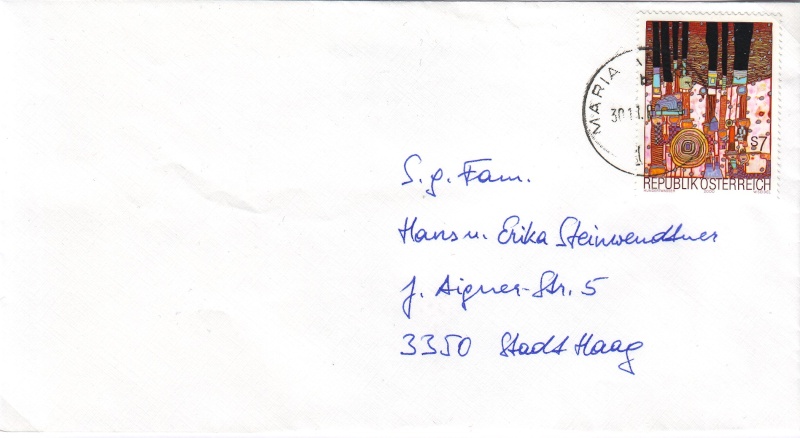 MARIA
30.11.0
S7
REPUBLIK ÖSTERREICH
S. g. Fam.
Hans u. Erika Steinwendtner
J. Aigner-Str. 5
3350 Stadt Haag